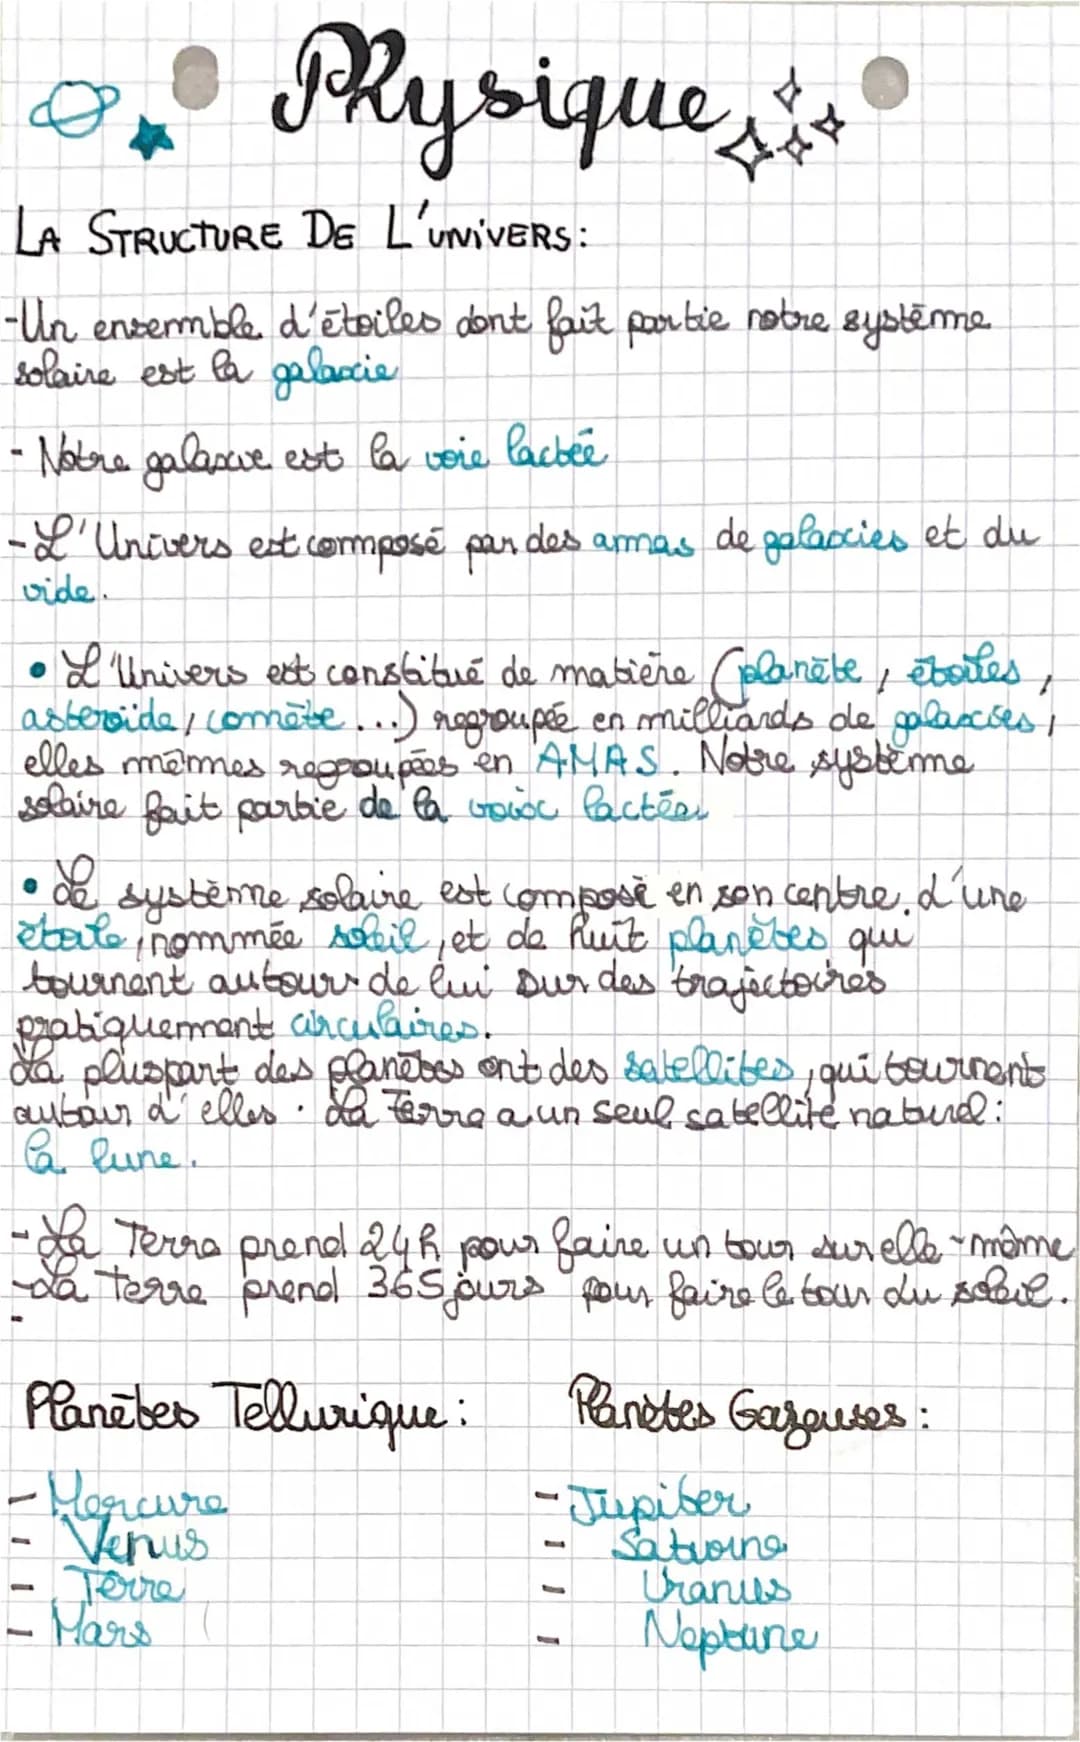 Physique
LA STRUCTURE DE L'UNIVERS:
-Un ensemble d'étoiles dont fait partie notre système
solaire est la galaxie
- Notre galaxie est la voie lactée
-L'Univers est composé par des amas de galaxies et du
vide.
• L'Univers est constitué de matière (planète, étoiles,
asteroïde, comète...) regroupée en milliards de galaxies,
elles mêmes regroupées en AMAS. Notre système
solaire fait partie de la voix lactée
• Le système solaire est composé en son centre d'une
étoile, nommée soleil, et de huit planètes qui
tournent autours de lui sur des trajectoires
pratiquement circulaires.
La pluspart des planètes ont des satellites, qui tournent
autour d'elles. La Terre a un seul satellite naturel:
la lune.
-La Terre prend 24h pour faire un tour sur elle-même
-La Terre prend 365 jours pour faire le tour du soleil.
-
Planètes Tellurique: Planètes Gazeuses:
- Mercure - Jupiter
- Venus - Saturne
- Terre - Uranus
- Mars - Neptune